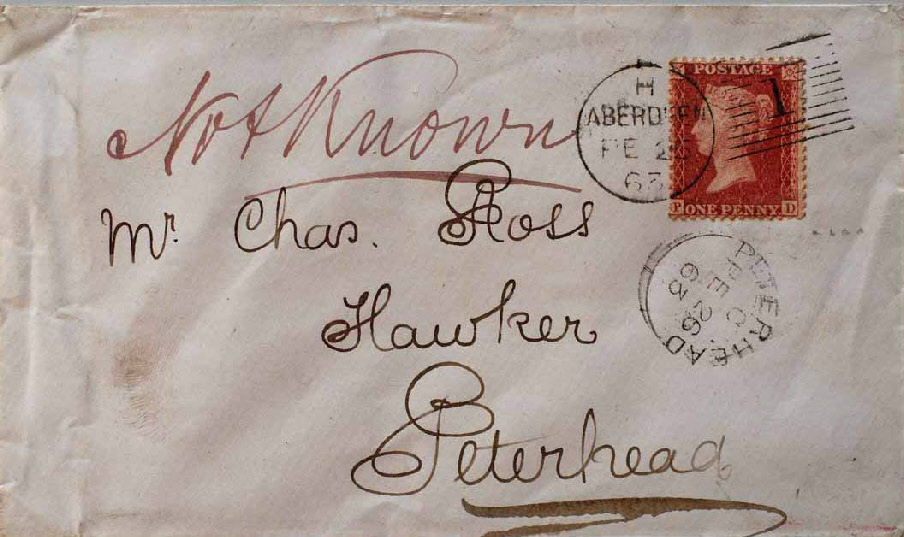 Not Known
Mr. Chas. Ross
Hawker
Peterhead
H
ABERDEEN
FE 2
63
1
POSTAGE
P ONE PENNY D
PETERHEAD
C
FE 26
63